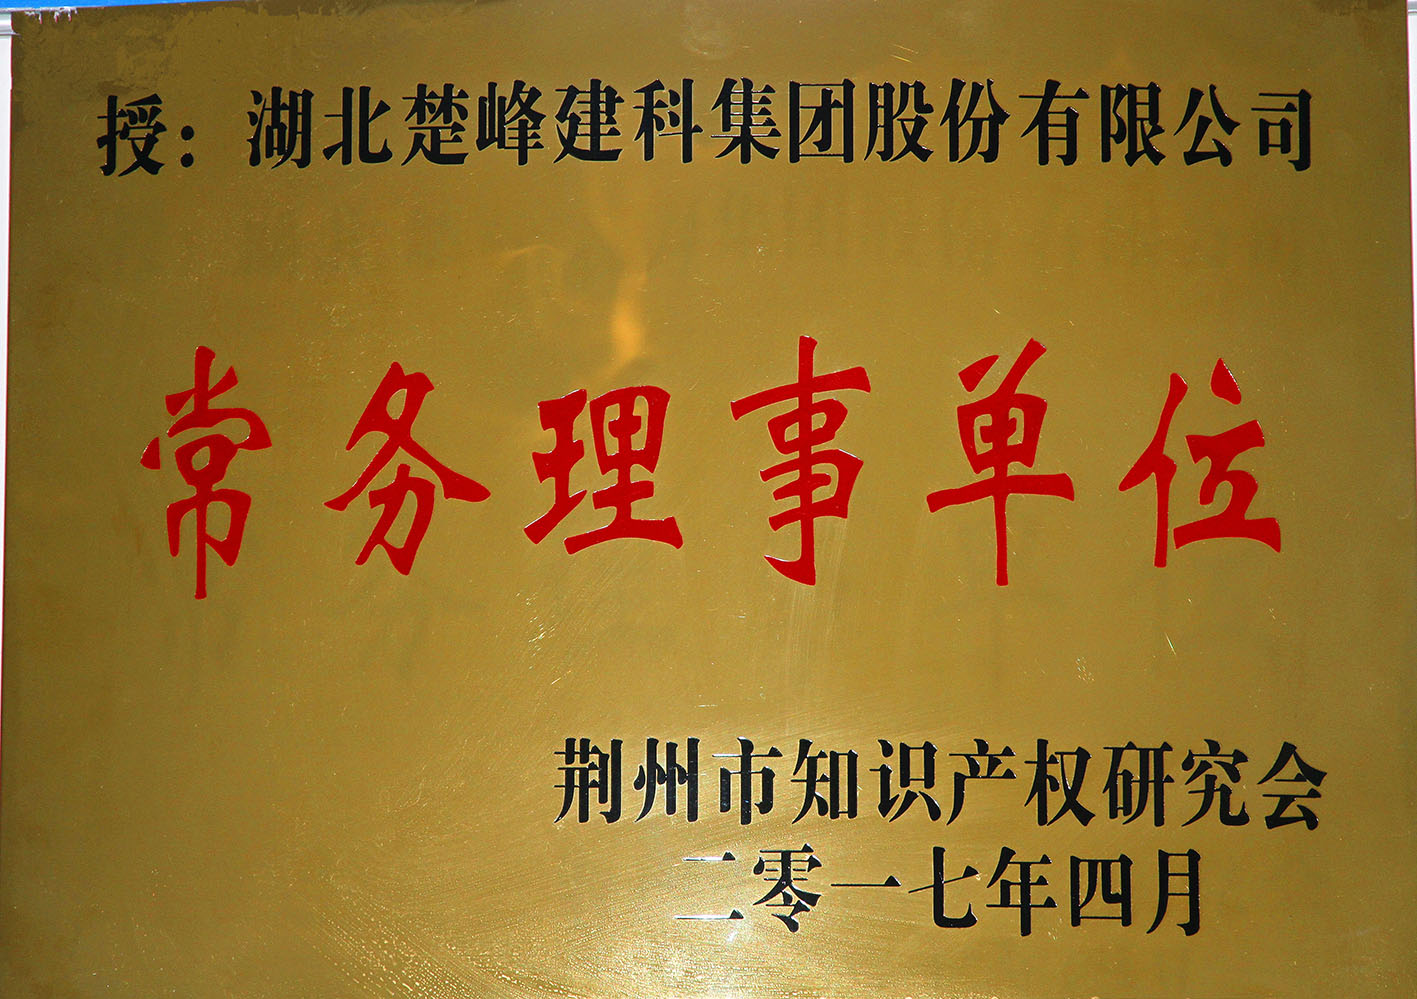 授：湖北楚峰建科集团股份有限公司
常务理事单位
荆州市知识产权研究会
二零一七年四月